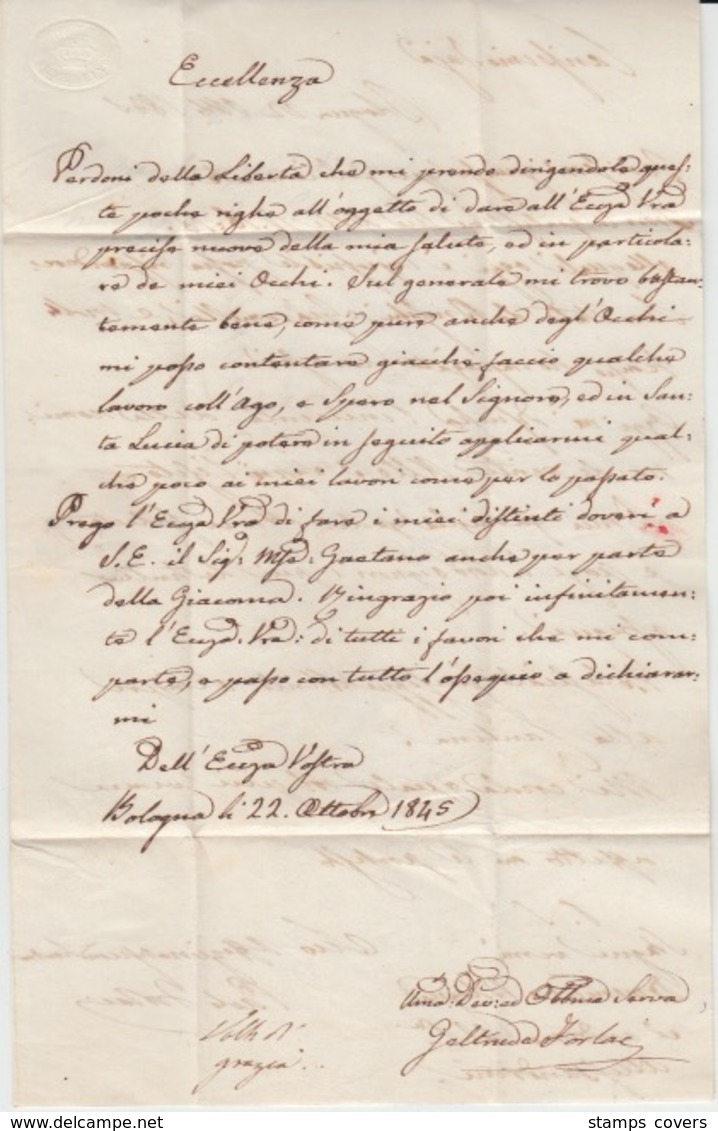 Eccellenza
Perdoni della Libertà che mi prendo dirigendole ques-
te poche righe all'oggetto di dare all'Ecc:za Vra
precise nuove della mia salute, ed in particola:
re de miei Occhi. Sul generale mi trovo bastan-
temente bene, come pure anche degl'Occhi
mi posso contentare giacchè faccio qualche
lavoro coll'Ago, e Spero nel Signore, ed in San-
ta Lucia di potere in seguito applicarmi qual-
che poco ai miei lavori come per lo passato.
Prego l'Ecc:za Vra di fare i miei distinti doveri a
S. E. il Sig: Mse: Gaetano anche per parte
della Giacoma. Ringrazio poi infinitamen-
te l'Ecc:za: Vra: di tutti i favori che mi com-
parte, e passo con tutto l'ossequio a dichiarar-
mi
Dell'Ecc:za Vostra
Bologna li 22. Ottobre 1845
Uma: Dev: ed Obbma Serva
Volti
grazia
Geltrude Forlai
stamps covers